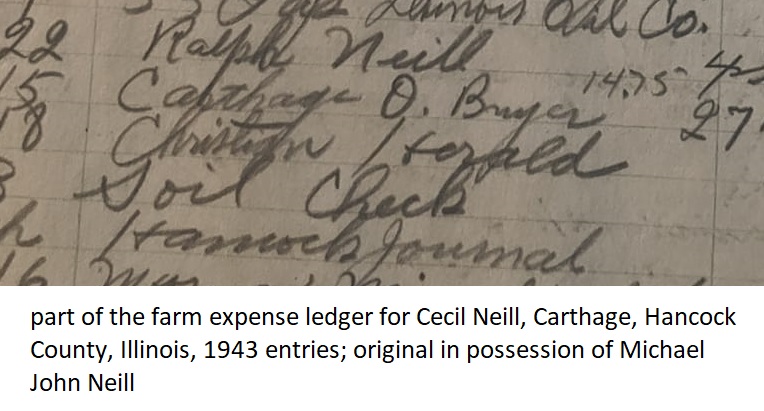 Illinois Oil Co.
22 Ralph Neill 4
15 Carthage O. Buyer 14.75 27
18 Christian Herald
Soil Check
Hancock Journal
16
part of the farm expense ledger for Cecil Neill, Carthage, Hancock
County, Illinois, 1943 entries; original in possession of Michael
John Neill